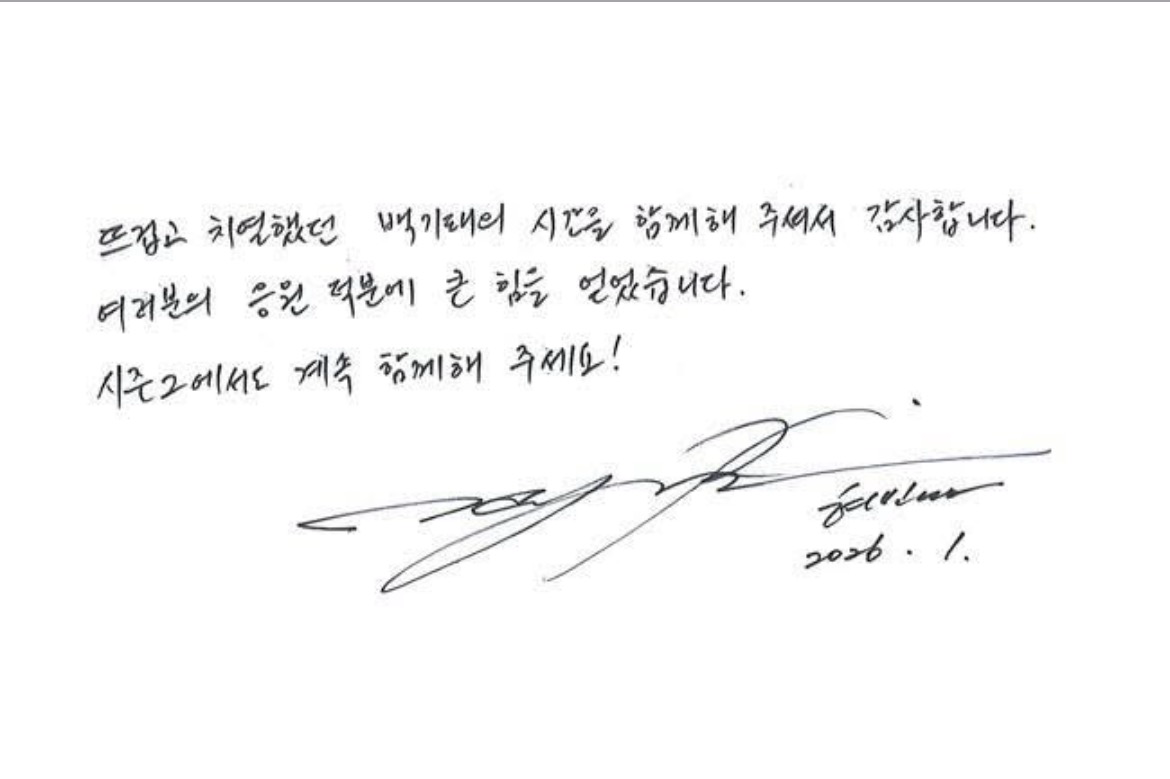 뜨겁고 치열했던 백기태의 시간을 함께해 주셔서 감사합니다.
여러분의 응원 덕분에 큰 힘을 얻었습니다.
시즌2에서도 계속 함께해 주세요!
현빈
2026. 1.